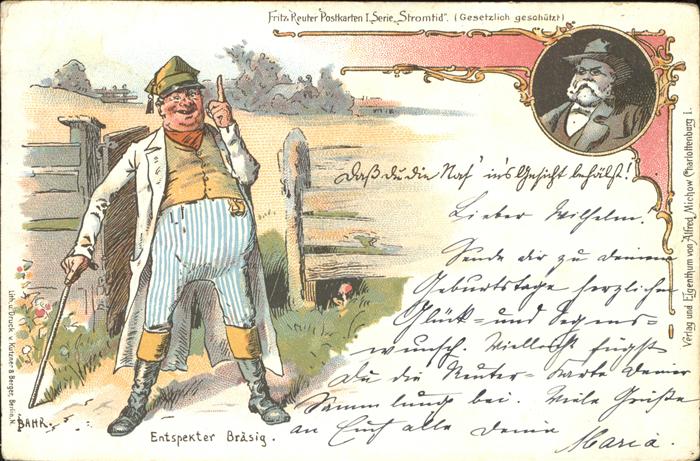 Fritz Reuter Postkarten I. Serie „Stromtid". (Gesetzlich geschützt)
Daß du die Nas' in's Gesicht behälst!
Lieber Wilhelm.
Sende dir zu deinem
Geburtstage herzlichen
Glück- und Segens-
wunsch. Vielleicht fügst
Du die Reuter-Karte Deiner
Sammlung bei. Viele Grüße
an Euch alle Deine
Maria.
Entspekter Bräsig.
BAHR.
Lith. u. Druck v. Kutzner & Berger, Berlin, N.
Verlag und Eigenthum von Alfred Michow Charlottenburg I.